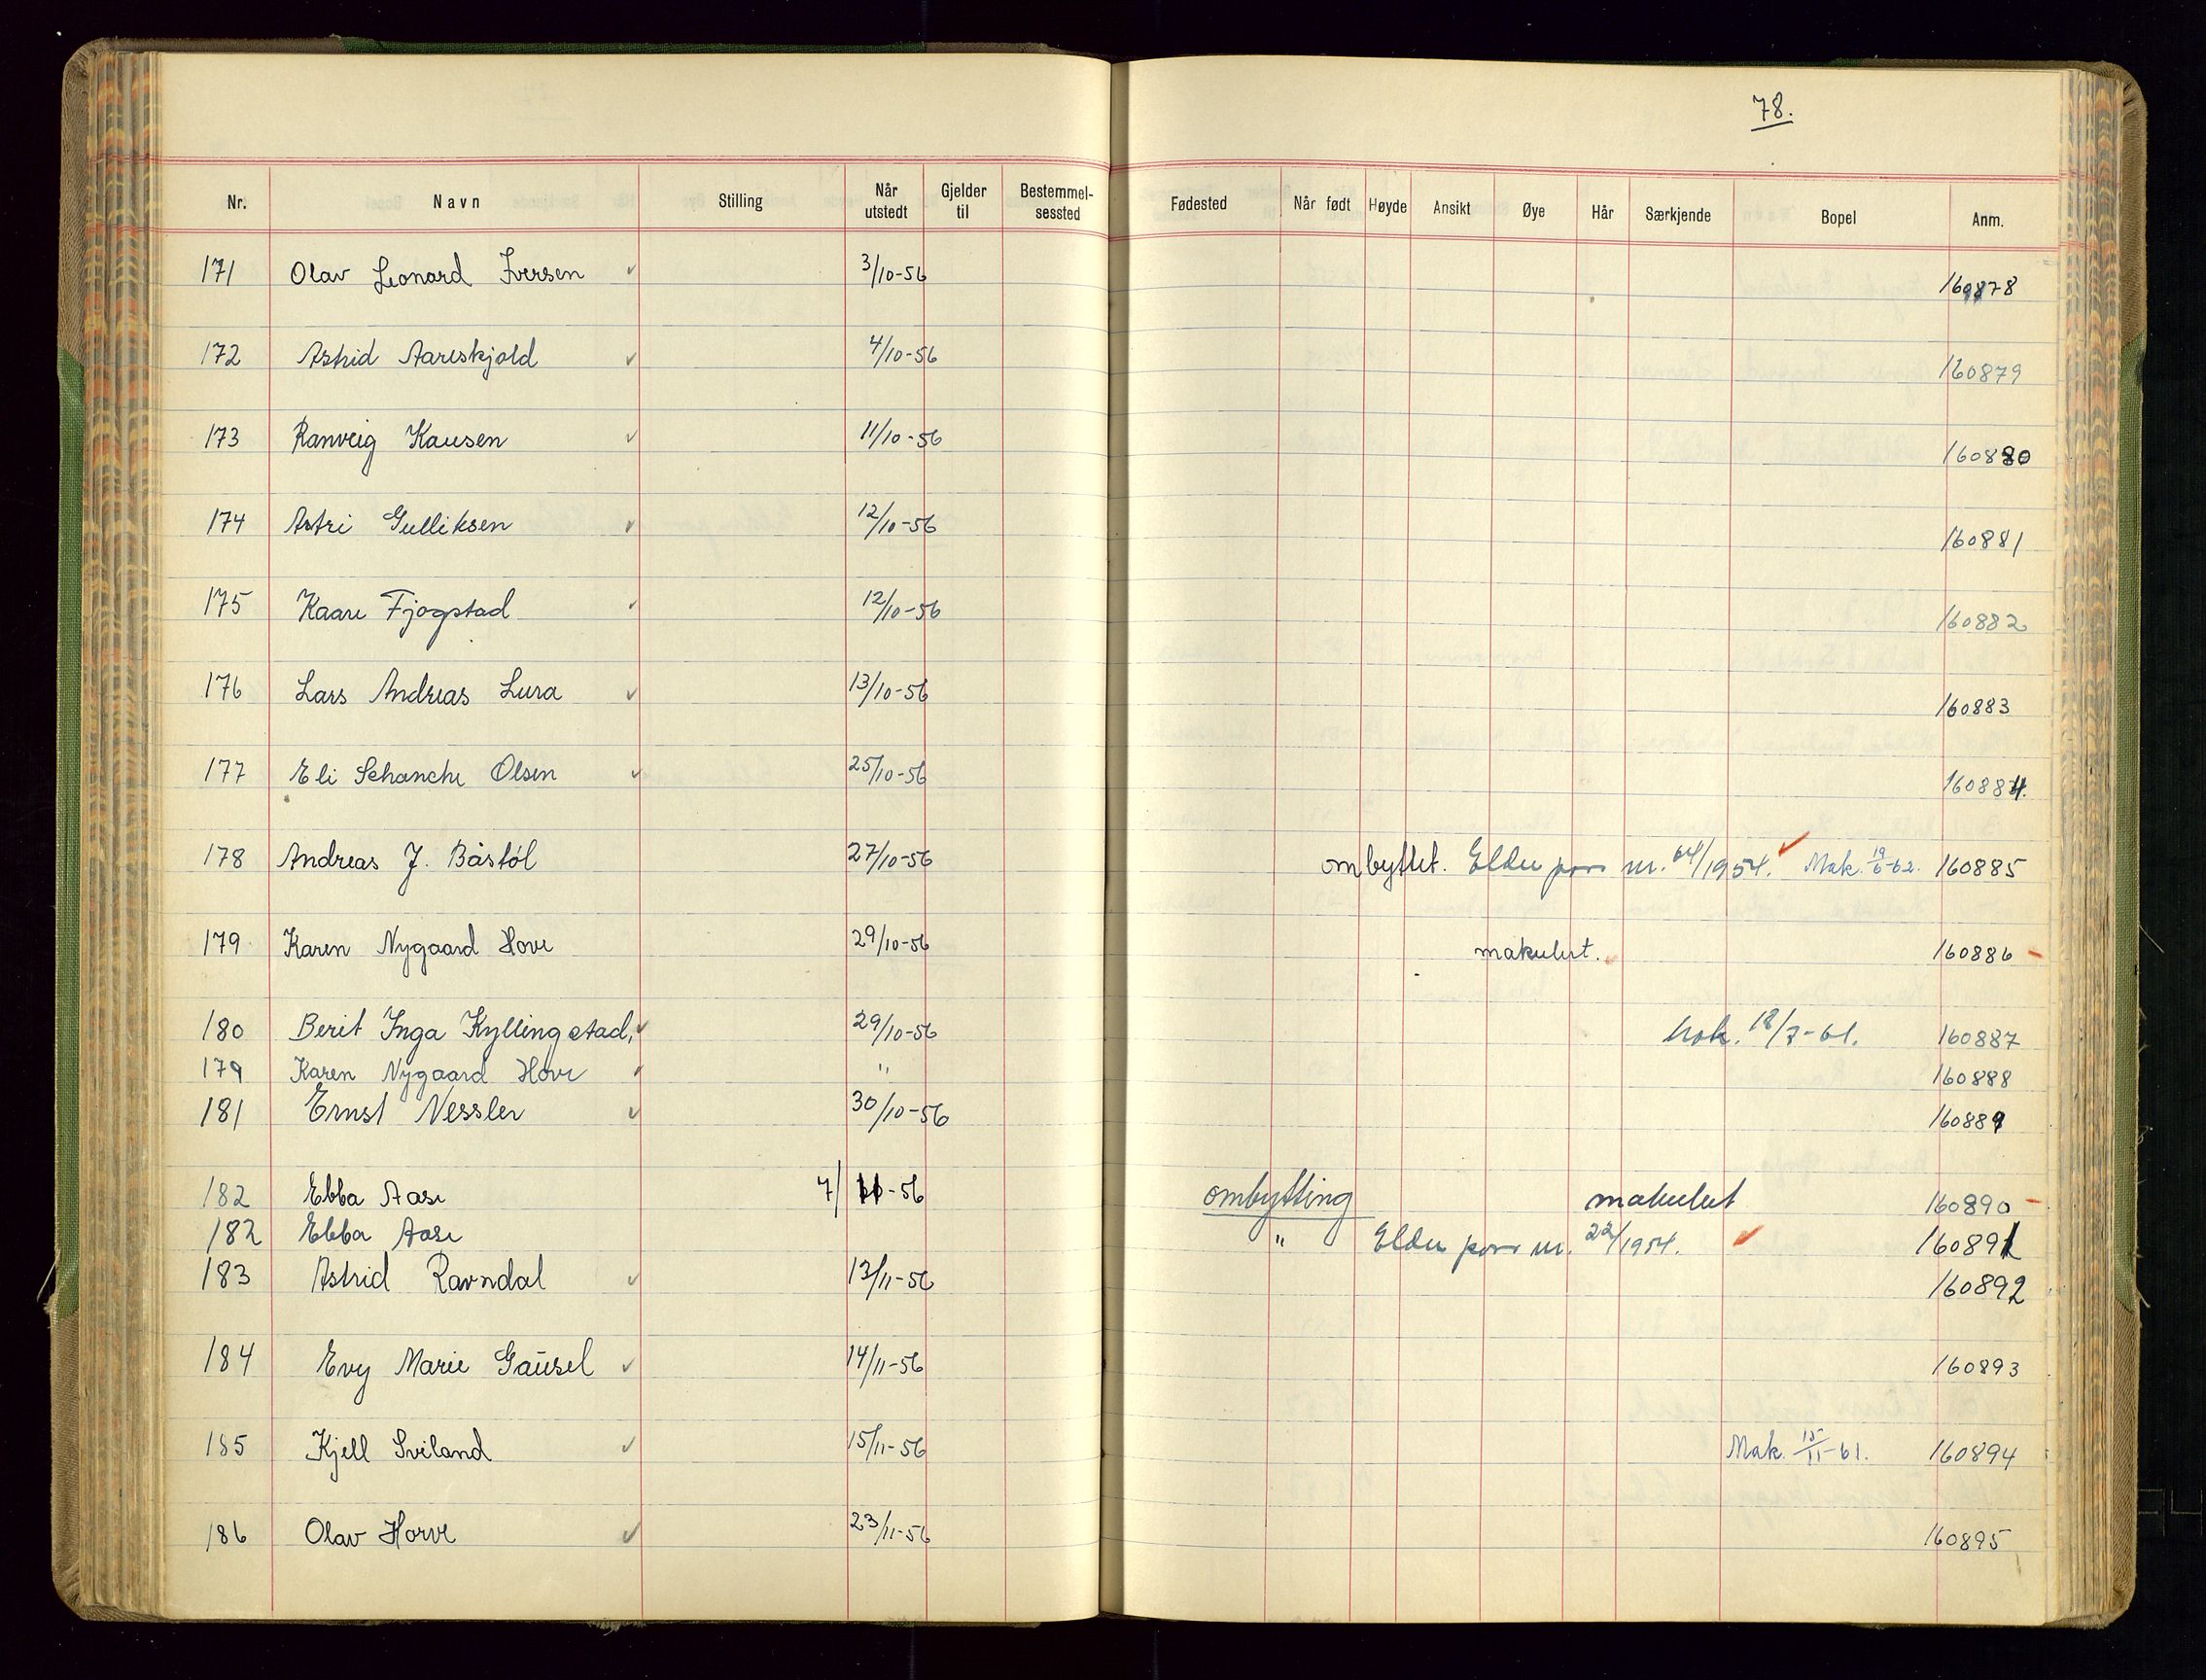 78.
Nr. Navn Stilling Når utstedt Gjelder til Bestemmel-sessted Fødested Når født Høyde Ansikt Øye Hår Særkjende Bopel Anm.
171 Olav Leonard Iversen ✓ 3/10-56 160878
172 Astrid Aareskjold ✓ 4/10-56 160879
173 Ranveig Kausen ✓ 11/10-56 160880
174 Astri Gulliksen ✓ 12/10-56 160881
175 Kaare Fjogstad ✓ 12/10-56 160882
176 Lars Andreas Lura ✓ 13/10-56 160883
177 Eli Schanche Olsen ✓ 25/10-56 160884
178 Andreas J. Båstøl 27/10-56 ombyttet. Eldre pass nr. 64/1954. ✓ Mak. 19/6-62. 160885
179 Karen Nygaard Hove 29/10-56 makulert. 160886 -
180 Berit Inga Kyllingstad, ✓ 29/10-56 Mak. 18/7-61. 160887
179 Karen Nygaard Hove ✓ " 160888
181 Ernst Nessler ✓ 30/10-56 160889
182 Ebba Aase 7/11-56 ombytting makulert 160890 -
182 Ebba Aase " Eldre pass nr. 22/1954. ✓ 160891
183 Astrid Ravndal ✓ 13/11-56 160892
184 Evy Marie Gausel ✓ 14/11-56 160893
185 Kjell Sviland ✓ 15/11-56 Mak. 15/11-61. 160894
186 Olav Horve ✓ 23/11-56 160895